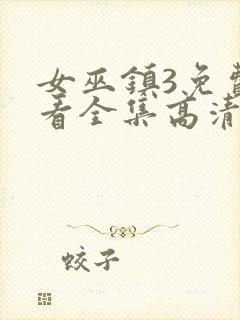 女巫鎮3免費
看全集高清
蛟子